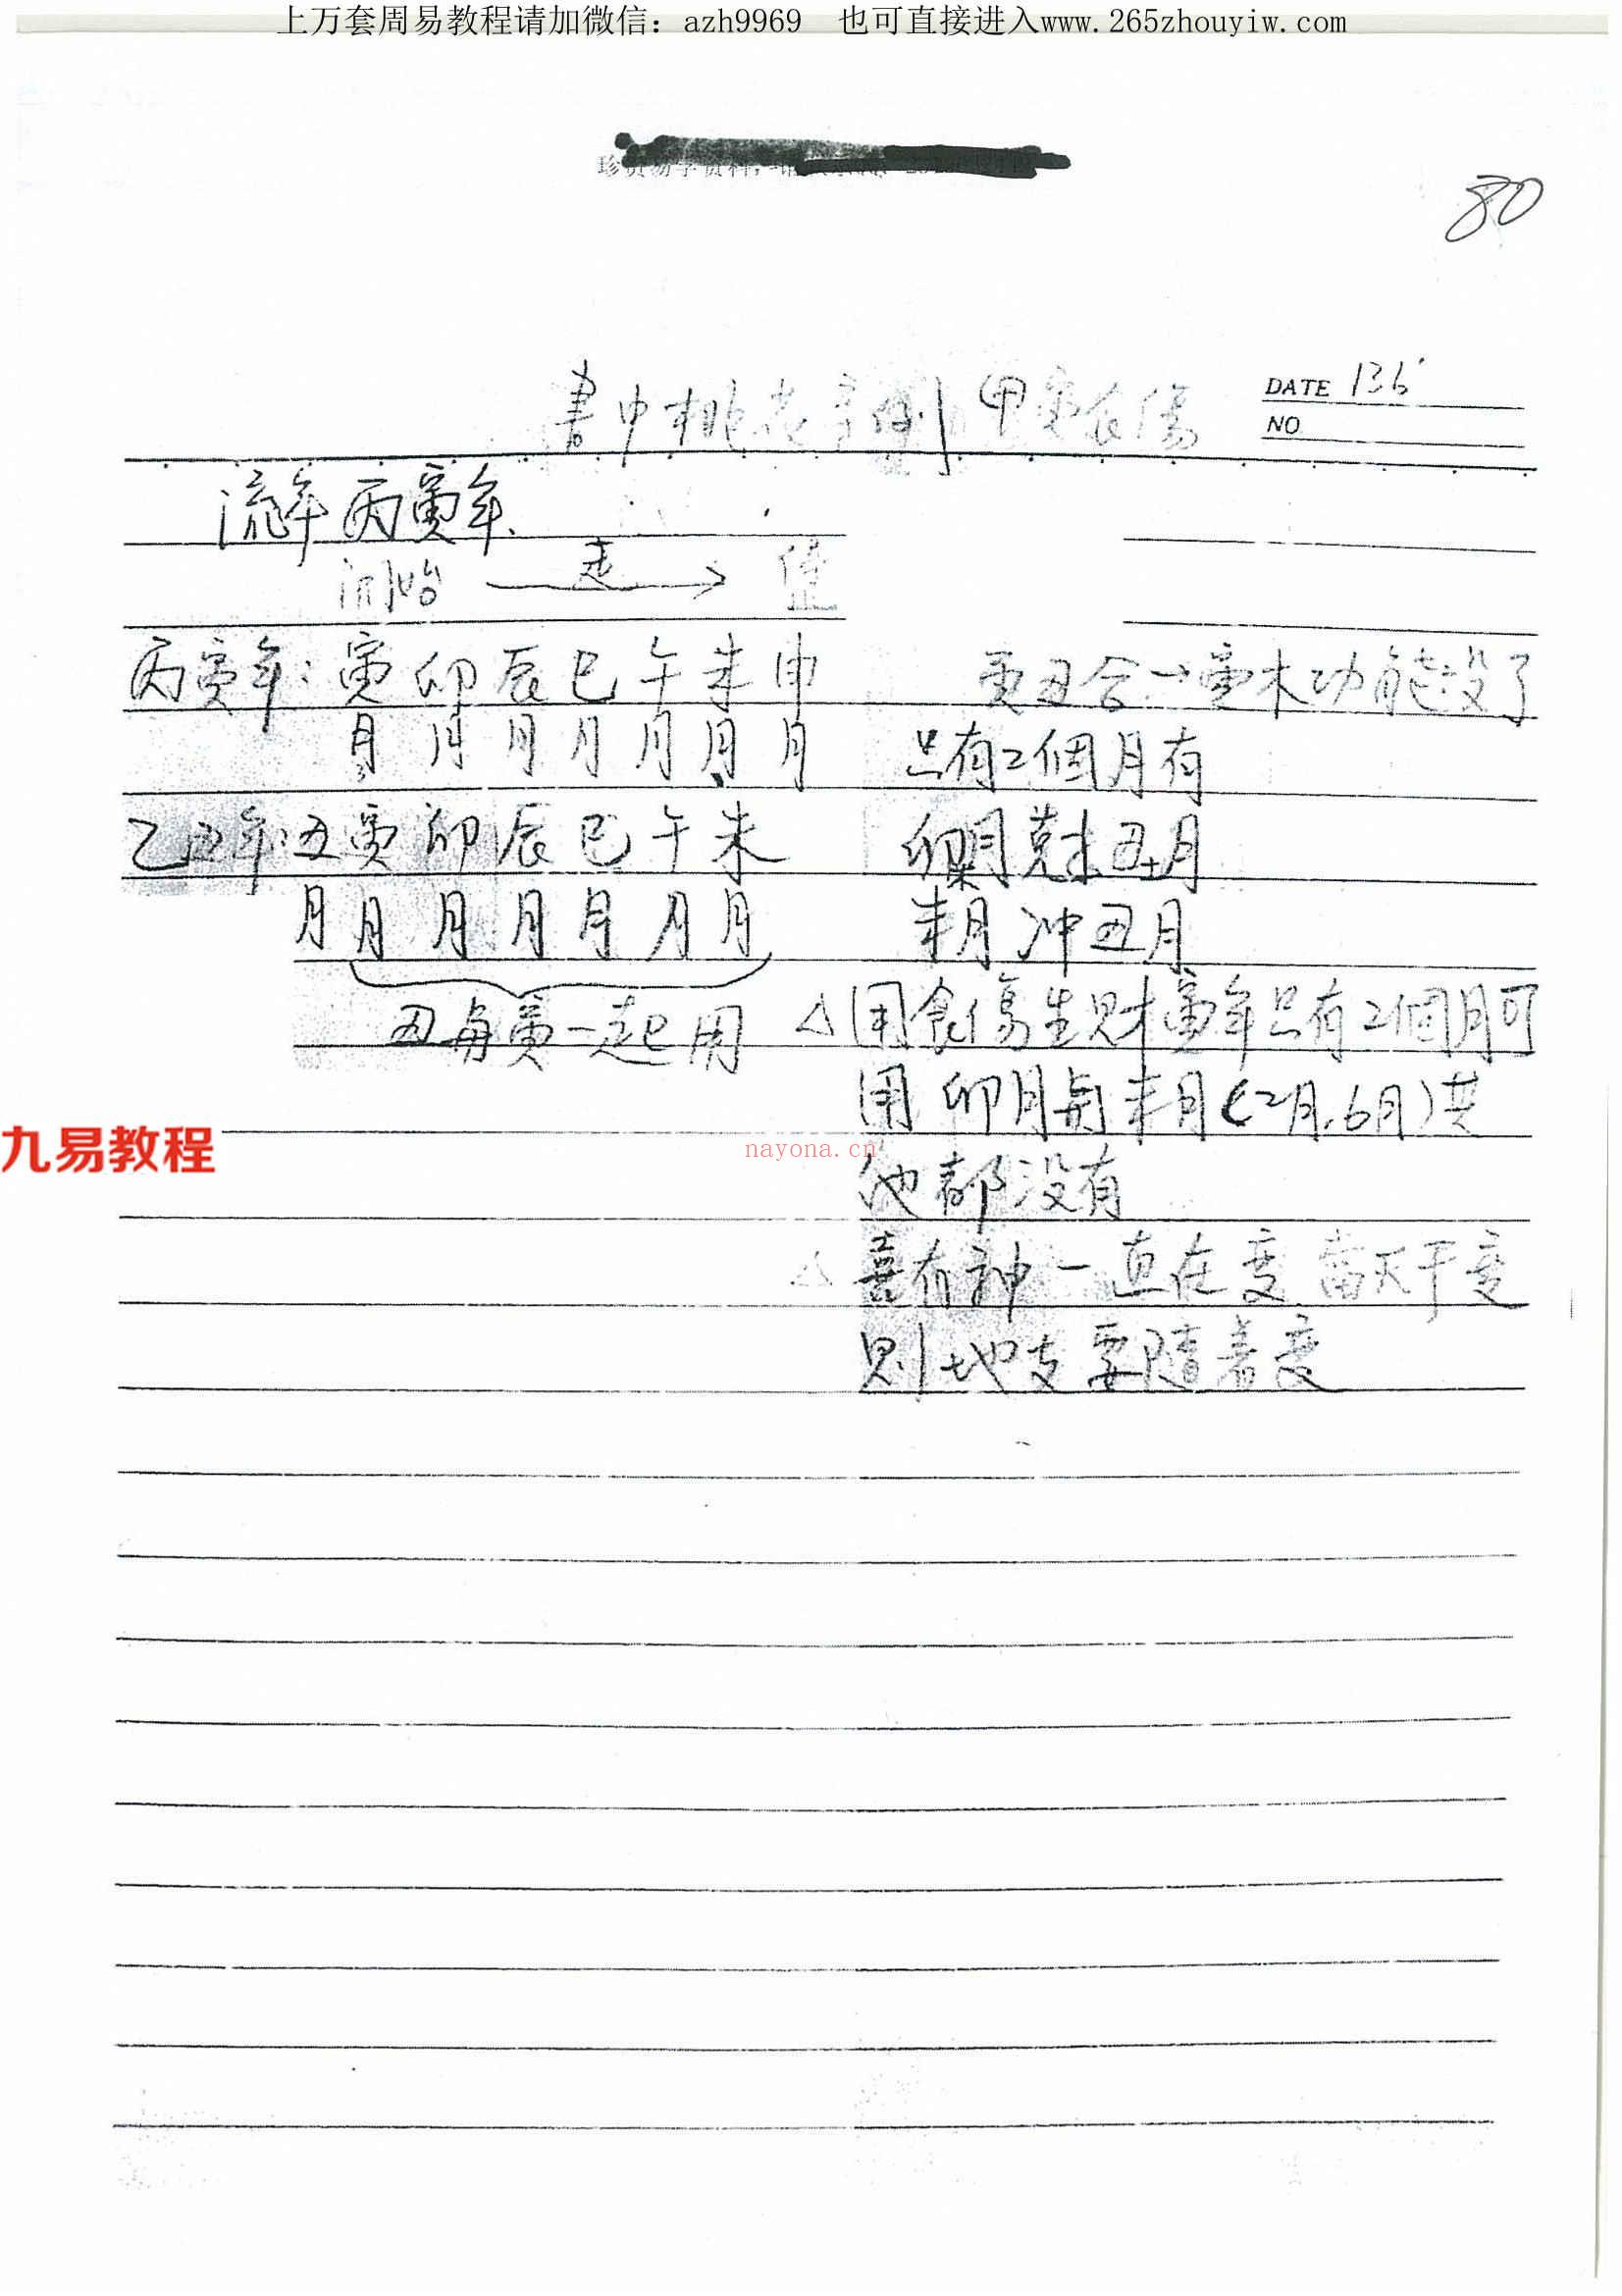 上万套周易教程请加微信：azh9969 也可直接进入www.265zhouyiw.com
80
書中桃花 甲寅食傷
DATE 136
NO
流年丙寅年、
開始 走
丙寅年：寅 卯 辰 巳 午 未 申
月 月 月 月 月 月 月
乙丑年：丑 寅 卯 辰 巳 午 未
月 月 月 月 月 月 月
丑每寅一起用
寅丑合→寅木功能没了
只有2個月有
卯月克丑月
未月冲丑月
△用食傷生財寅年只有2個月可
用 卯月與未月(2月.6月)其
他都没有
△喜用神一直在变 當天干变
则地支要隨着变
九易教程
nayona.cn